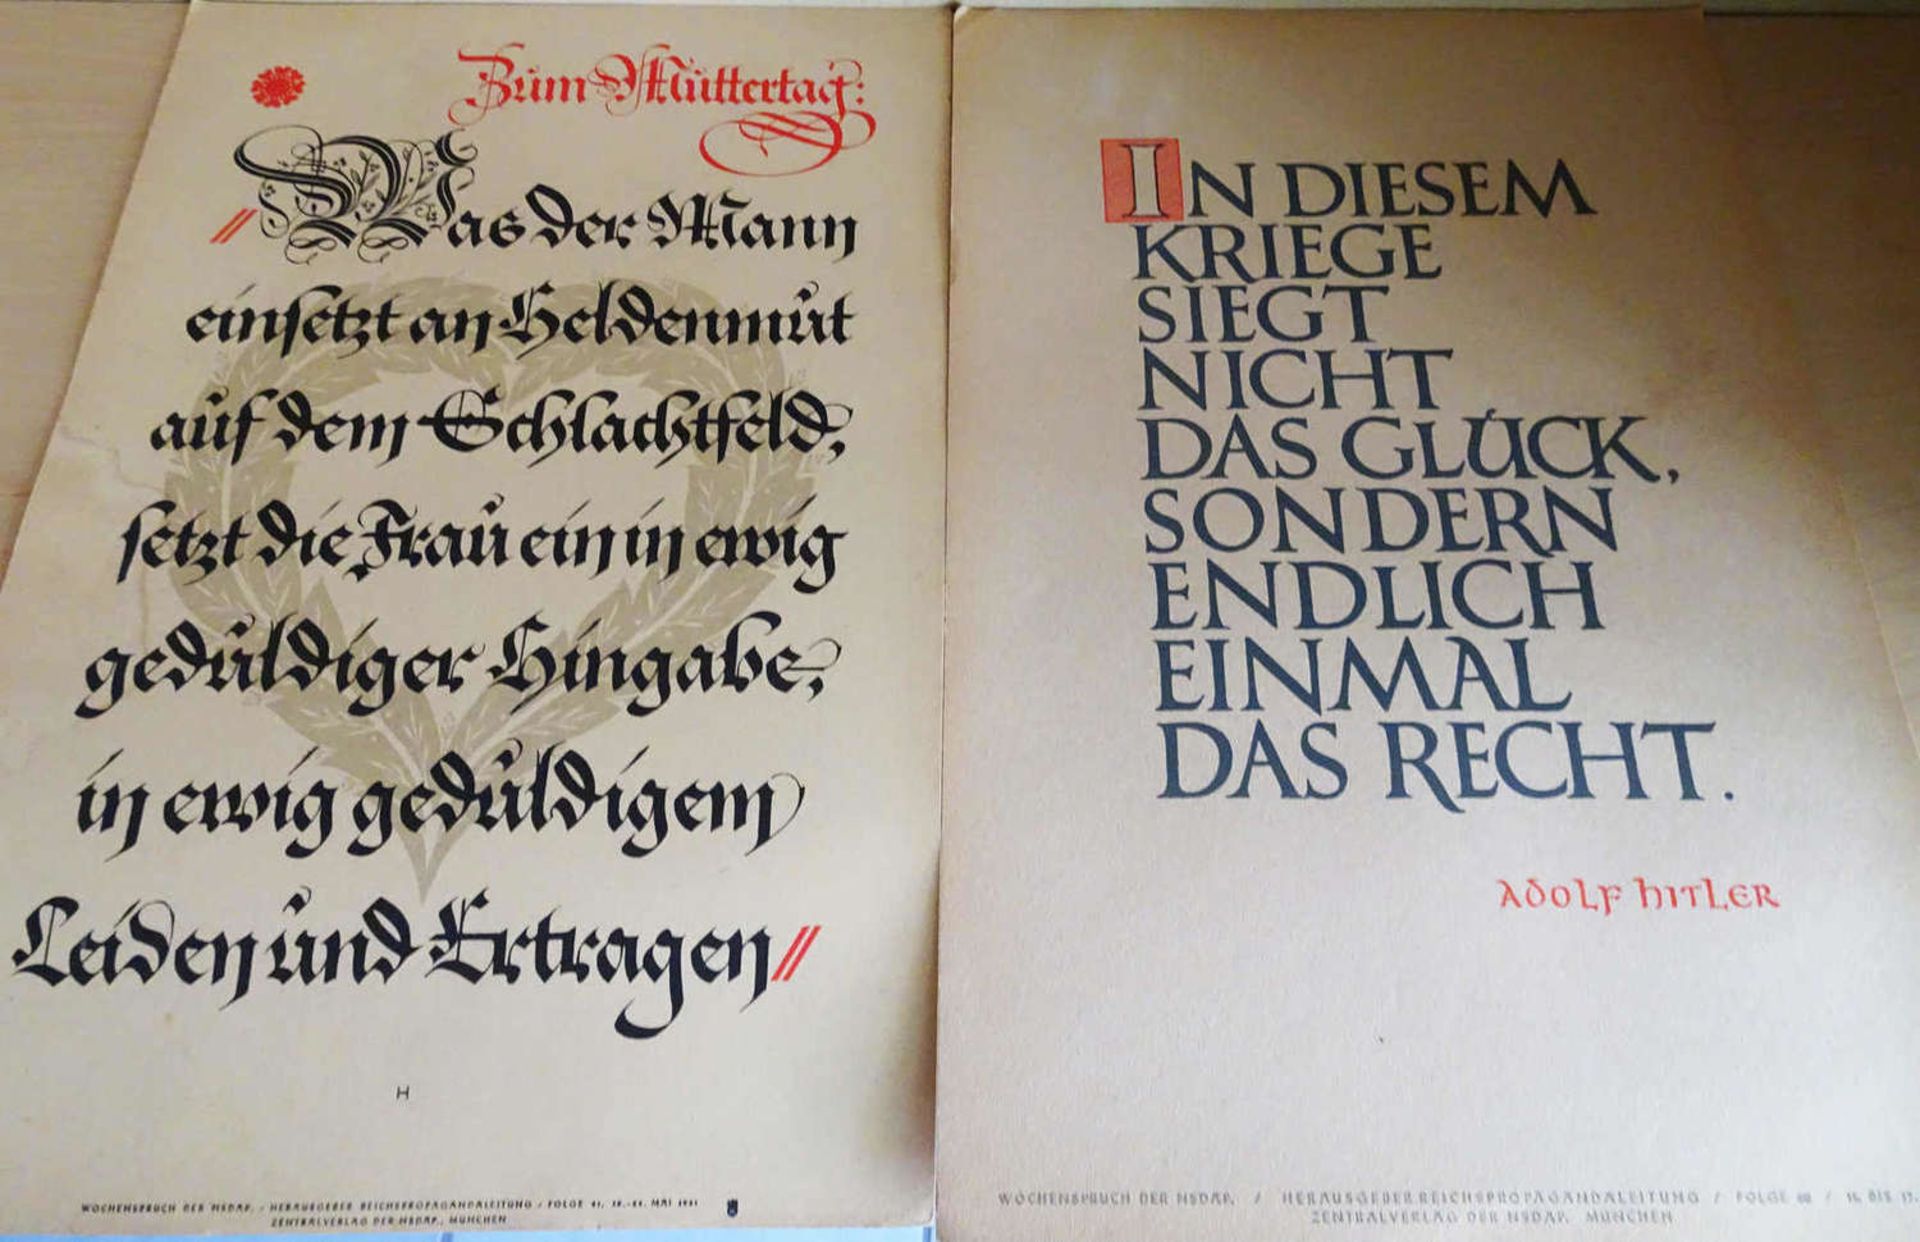 Zum Muttertag:
"Was der Mann
einsetzt an Heldenmut
auf dem Schlachtfeld,
setzt die Frau ein in ewig
geduldiger Hingabe,
in ewig geduldigem
Leiden und Ertragen"
H
WOCHENSPRUCH DER NSDAP. / HERAUSGEBER REICHSPROPAGANDALEITUNG / FOLGE MAI
ZENTRALVERLAG DER NSDAP., MÜNCHEN
IN DIESEM
KRIEGE
SIEGT
NICHT
DAS GLÜCK,
SONDERN
ENDLICH
EINMAL
DAS RECHT.
ADOLF HITLER
WOCHENSPRUCH DER NSDAP. / HERAUSGEBER REICHSPROPAGANDALEITUNG / FOLGE / BIS
ZENTRALVERLAG DER NSDAP. MÜNCHEN